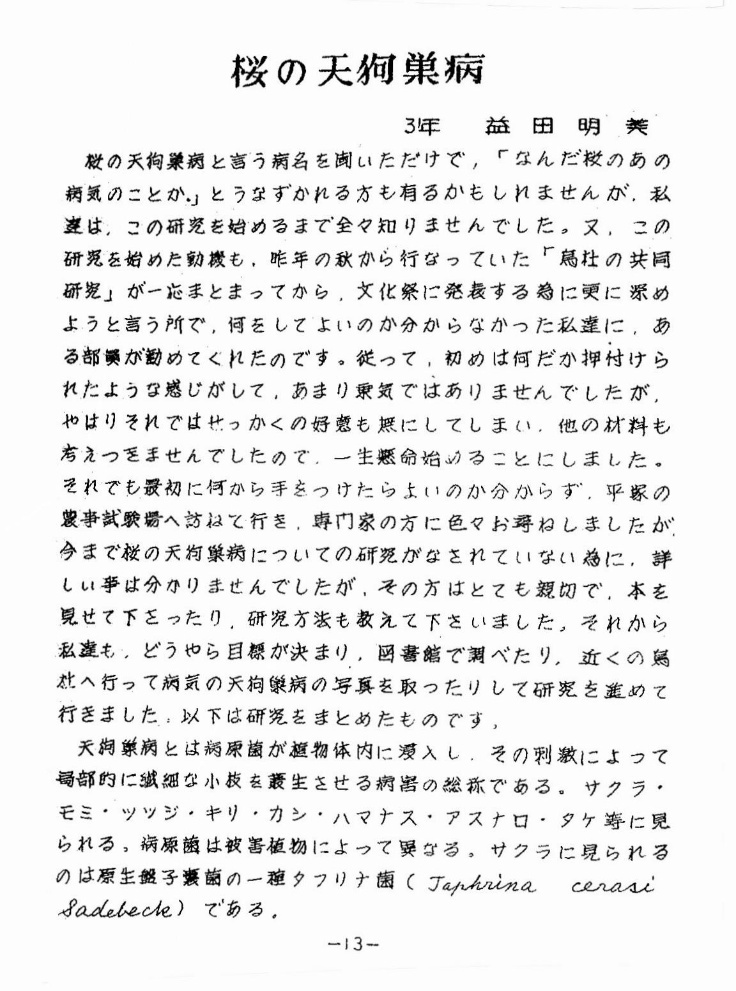 桜の天狗巣病
3年 益田明美
桜の天狗巣病と言う病名を聞いただけで,「なんだ桜のあの
病気のことか.」とうなずかれる方も有るかもしれませんが,私
達は,この研究を始めるまで全々知りませんでした。又,この
研究を始めた動機も,昨年の秋から行なっていた「鳥社の共同
研究」が一応まとまってから,文化祭に発表する為に更に深め
ようと言う所で,何をしてよいのか分からなかった私達に,あ
る部員が勧めてくれたのです。従って,初めは何だか押付けら
れたような感じがして,あまり乗気ではありませんでしたが,
やはりそれではせっかくの好意も無にしてしまい,他の材料も
考えつきませんでしたので,一生懸命始めることにしました。
それでも最初に何から手をつけたらよいのか分からず,平塚の
農事試験場へ訪ねて行き,専門家の方に色々お尋ねしましたが,
今まで桜の天狗巣病についての研究がなされていない為に,詳
しい事は分かりませんでしたが,その方はとても親切で,本を
見せて下さったり,研究方法も教えて下さいました。それから
私達も,どうやら目標が決まり,図書館で調べたり,近くの鳥
社へ行って病気の天狗巣病の写真を取ったりして研究を進めて
行きました。以下は研究をまとめたものです。
天狗巣病とは病原菌が植物体内に浸入し,その刺激によって
局部的に繊細な小枝を叢生させる病害の総称である。サクラ・
モミ・ツツジ・キリ・カシ・ハマナス・アスナロ・タケ等に見
られる。病原菌は被害植物によって異なる。サクラに見られる
のは原生盤子嚢菌の一種タフリナ菌(Taphrina cerasi
Sadebeck)である。
-13-